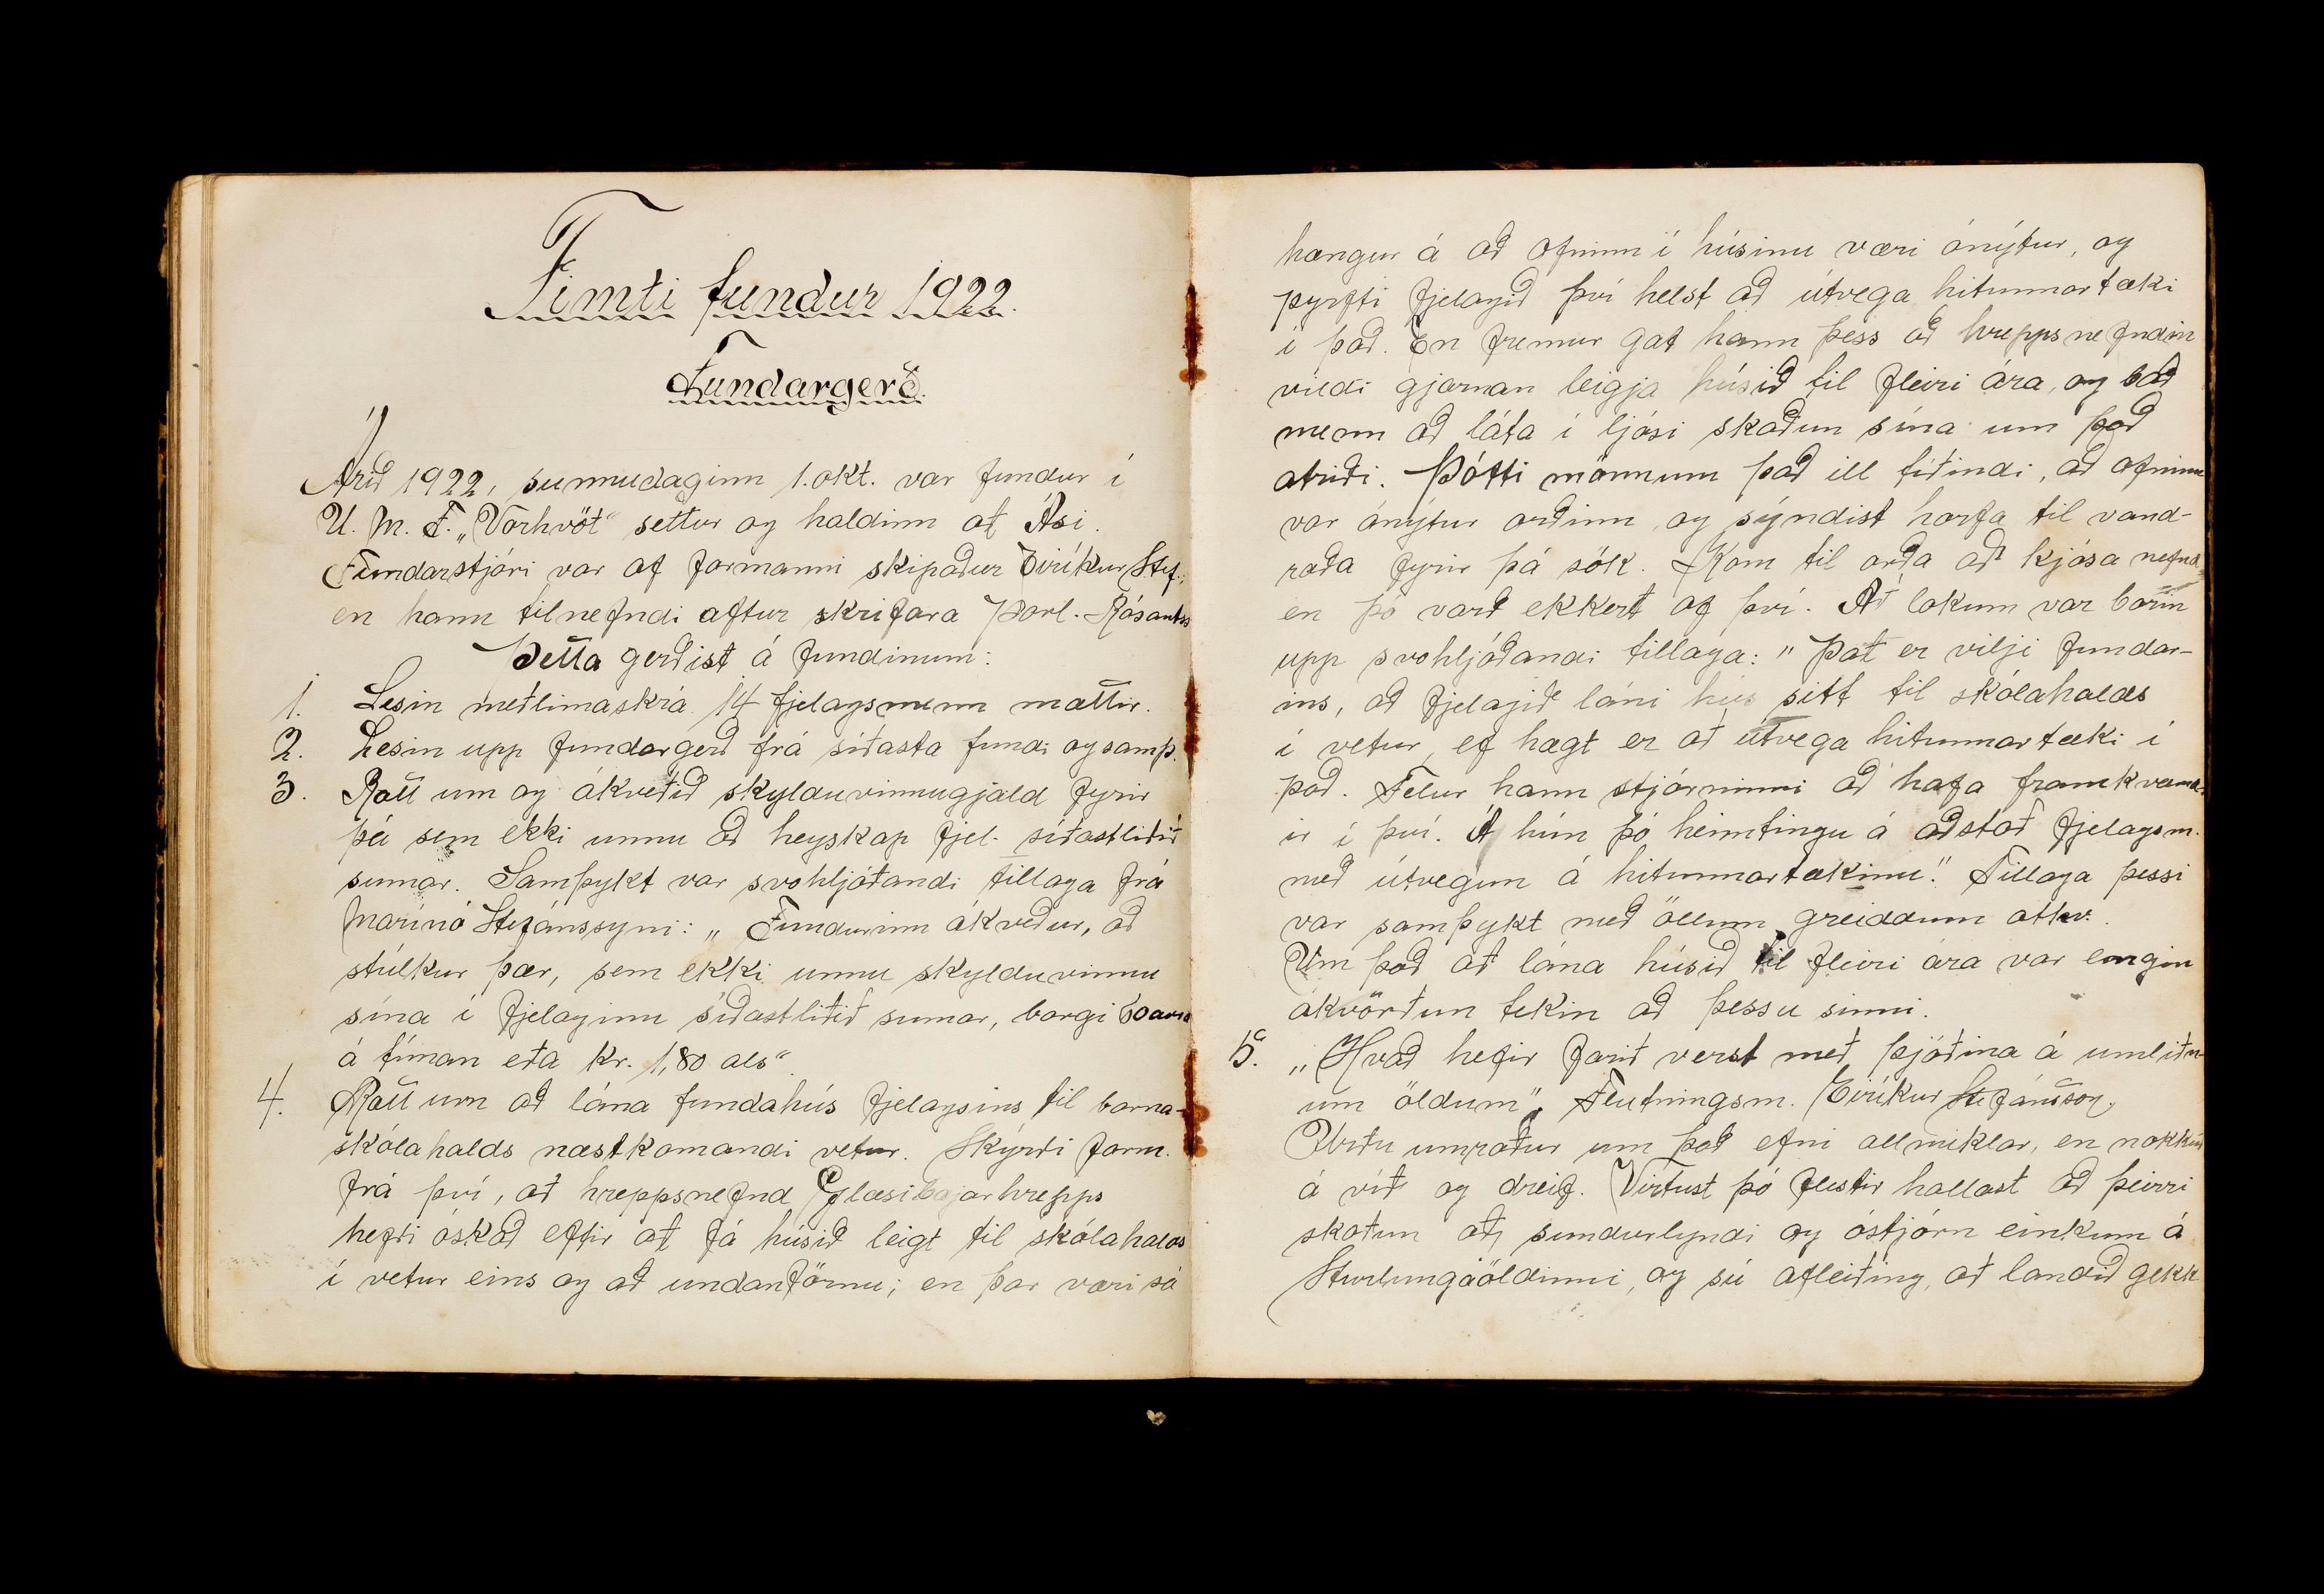 Fimti fundur 1922.
Fundargerð.
Árið 1922, sunnudaginn 1. okt. var fundur í
U. M. F. „Vorhvöt“ settur og haldinn að Ási.
Fundarstjóri var af formanni skipaður Eiríkur Stef.,
en hann tilnefndi aftur skrifara Þorl. Rósantss
Þetta gerðist á fundinum:
1. Lesin meðlimaskrá 14 fjelagsmenn mættir.
2. Lesin upp fundargerð frá síðasta fundi og samþ.
3. Rætt um og ákveðið skylduvinnugjald fyrir
þá sem ekki unnu að heyskap fjel. síðastliðið
sumar. Samþykt var svohljóðandi tillaga frá
Marinó Stefánssyni: „Fundurinn ákveður, að
stúlkur þær, sem ekki unnu skylduvinnu
sína í fjelaginu síðastliðið sumar, borgi 60 aura
á tíman eða kr. 1,80 als“.
4. Rætt um að lána fundahús fjelagsins til barna-
skólahalds næstkomandi vetur. Skýrði form.
frá því, að hreppsnefnd Glæsibæjarhrepps
hefði óskað eftir að fá húsið leigt til skólahalds
í vetur eins og að undanförnu; en þar væri sá
hængur á að ofninn í húsinu væri ónýtur, og
þyrfti fjelagið því helst að útvega hitunnartæki
í það. En fremur gat hann þess að hreppsnefndin
vildi gjarnan leigja húsið til fleiri ára, og bað
menn að láta í ljósi skoðun sína um það
atriði. Þótti mönnum það ill tíðindi, að ofninn
var ónýtur orðinn og sýndist horfa til vand-
ræða fyrir þá sök. Kom til orða að kjósa nefnd,
en þó varð ekkert af því. Að lokum var borin
upp svohljóðandi tillaga: „Það er vilji fundar-
ins, að fjelagið láni hús sitt til skólahalds
í vetur, ef hægt er að útvega hitunnartæki í
það. Felur hann stjórninni að hafa framkvæmd-
ir í því. Á hún þó heimtingu á aðstoð fjelagsm.
með útvegun á hitunnartækinu“. Tillaga þessi
var samþykt með öllum greiddum atkv.
Um það að lána húsið til fleiri ára var eingin
ákvörðun tekin að þessu sinni.
5. „Hvað hefir farið verst með þjóðina á umliðn-
um öldum“. Flutningsm. Eiríkur Stefánsson.
Urðu umræður um það efni allmiklar, en nokkuð
á víð og dreif. Virtust þó flestir hallast að þeirri
skoðun að, sundurlyndi og óstjórn einkum á
Sturlungaöldinni, og sú afleiðing, að landið gekk